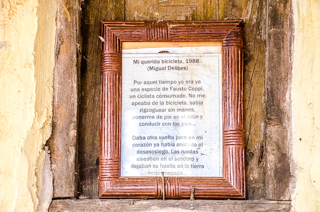 Mi querida bicicleta, 1988.
(Miguel Delibes)
Por aquel tiempo yo era ya
una especie de Fausto Coppi,
un ciclista consumado. No me
apeaba de la bicicleta, sabía
zigzaguear sin manos,
ponerme de pie en el sillín y
conducir con los pies...
Daba otra vuelta pero en mi
corazón ya había anidado el
desasosiego. Las ruedas
siseaban en el sendero y
dejaban su huella en la tierra